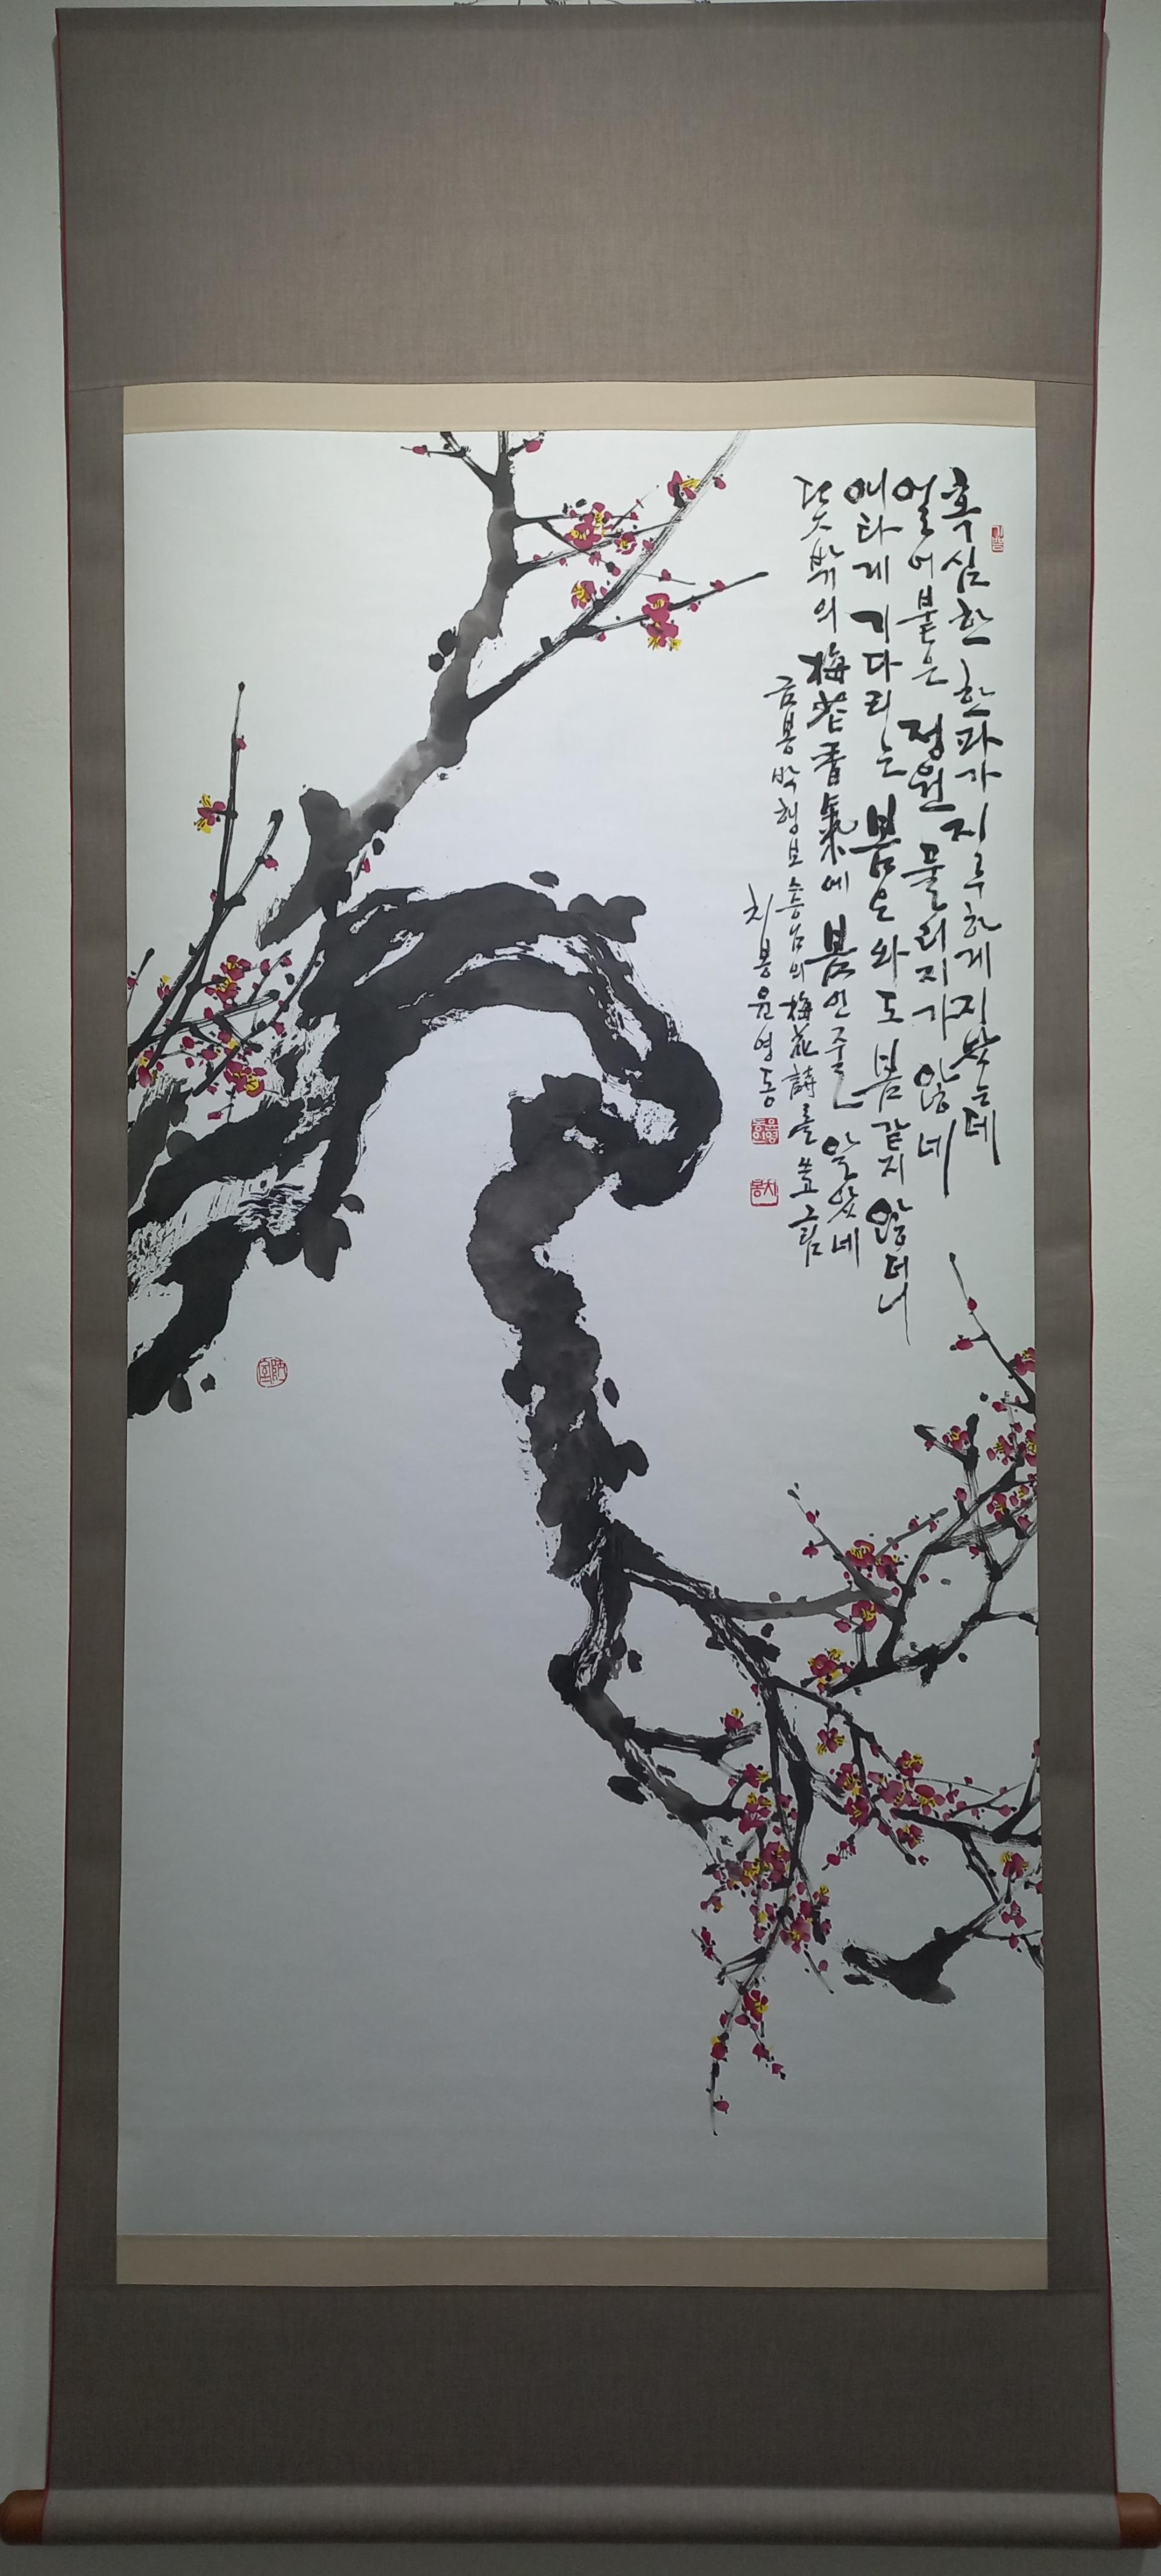 혹심한 한파가 지루하게 지났는데
얼어붙은 정원 풀리지가 않네
애타게 기다리는 봄은 와도 봄 같지 않더니
뜻밖의 梅花香氣에 봄인 줄 알았네
금봉 박행보 스승님의 梅花詩를 쓰고 그림
치봉 윤영동